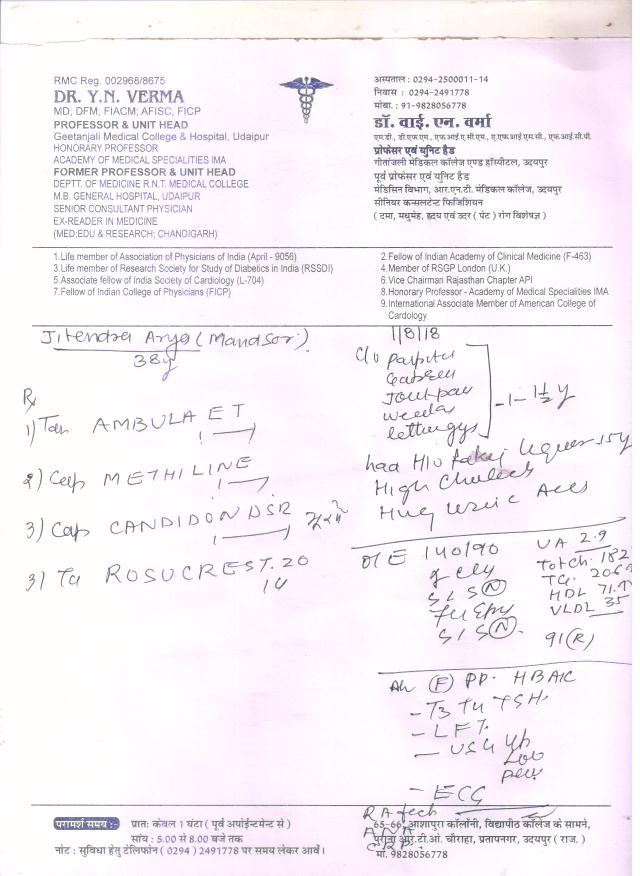 RMC Reg. 002968/8675
DR. Y.N. VERMA
MD; DFM; FIACM; AFISC; FICP
PROFESSOR & UNIT HEAD
Geetanjali Medical College & Hospital, Udaipur
HONORARY PROFESSOR
ACADEMY OF MEDICAL SPECIALITIES IMA
FORMER PROFESSOR & UNIT HEAD
DEPTT. OF MEDICINE R.N.T. MEDICAL COLLEGE
M.B. GENERAL HOSPITAL, UDAIPUR
SENIOR CONSULTANT PHYSICIAN
EX-READER IN MEDICINE
(MED;EDU & RESEARCH; CHANDIGARH)
अस्पताल : 0294-2500011-14
निवास : 0294-2491778
मोबा. : 91-9828056778
डॉ. वाई. एन. वर्मा
एम.डी., डी.एफ.एम., एफ.आई.ए.सी.एम., ए.एफ.आई.एम.सी., एफ.आई.सी.पी.
प्रोफेसर एवं यूनिट हैड
गीतांजली मेडिकल कॉलेज एण्ड हॉस्पीटल, उदयपुर
पूर्व प्रोफेसर एवं यूनिट हैड
मेडिसिन विभाग, आर.एन.टी. मेडिकल कॉलेज, उदयपुर
सीनियर कन्सलटेन्ट फिजिशियन
( दमा, मधुमेह, हृदय एवं उदर ( पेट ) रोग विशेषज्ञ )
1.Life member of Association of Physicians of India (April - 9056)
3.Life member of Research Society for Study of Diabetics in India (RSSDI)
5.Associate fellow of India Society of Cardiology (L-704)
7.Fellow of Indian College of Physicians (FICP)
2.Fellow of Indian Academy of Clinical Medicine (F-463)
4.Member of RSGP London (U.K.)
6.Vice Chairman Rajasthan Chapter API
8.Honorary Professor - Academy of Medical Specialities IMA
9.International Associate Member of American College of
Cardiology
Jitendra Arya (Mandsor)
38y
1/8/18
Rx
1) Tab AMBULA ET
2) Cap METHILINE
3) Cap CANDIDON DSR
3) Ta ROSUCREST. 20
14
C/o
Joint pain
1 - 1½ y
had H/o
High
O/E 140/90
S1 S2 (N)
UA 2.9
Tot Ch. 182
TG. 206
HDL 71.
VLDL 35
91 (R)
(F) PP. HBA1C
- T3 T4 TSH
- LFT.
- USG
- ECG
परामर्श समय :- प्रातः केवल 1 घंटा ( पूर्व अपॉइंटमेन्ट से )
सांय : 5.00 से 8.00 बजे तक
नोट : सुविधा हेतु टेलिफोन ( 0294 ) 2491778 पर समय लेकर आवें।
65-66, आशापुरा कॉलोनी, विद्यापीठ कॉलेज के सामने,
पुराना आर.टी.ओ. चौराहा, प्रतापनगर, उदयपुर ( राज. )
मो. 9828056778